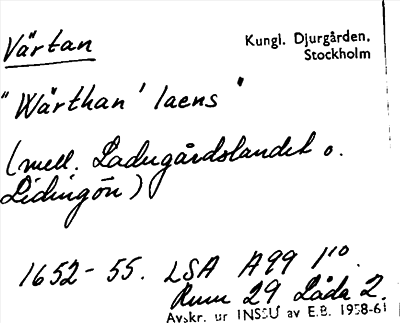 Värtan
Kungl. Djurgården,
Stockholm
"Wärthan' laens"
(mell. Ladugårdslandet o.
Lidingön)
1652-55. LSA A99 1¹⁰.
Rum 29 Låda 2.
Avskr. ur INSSU av E.B. 1958-61